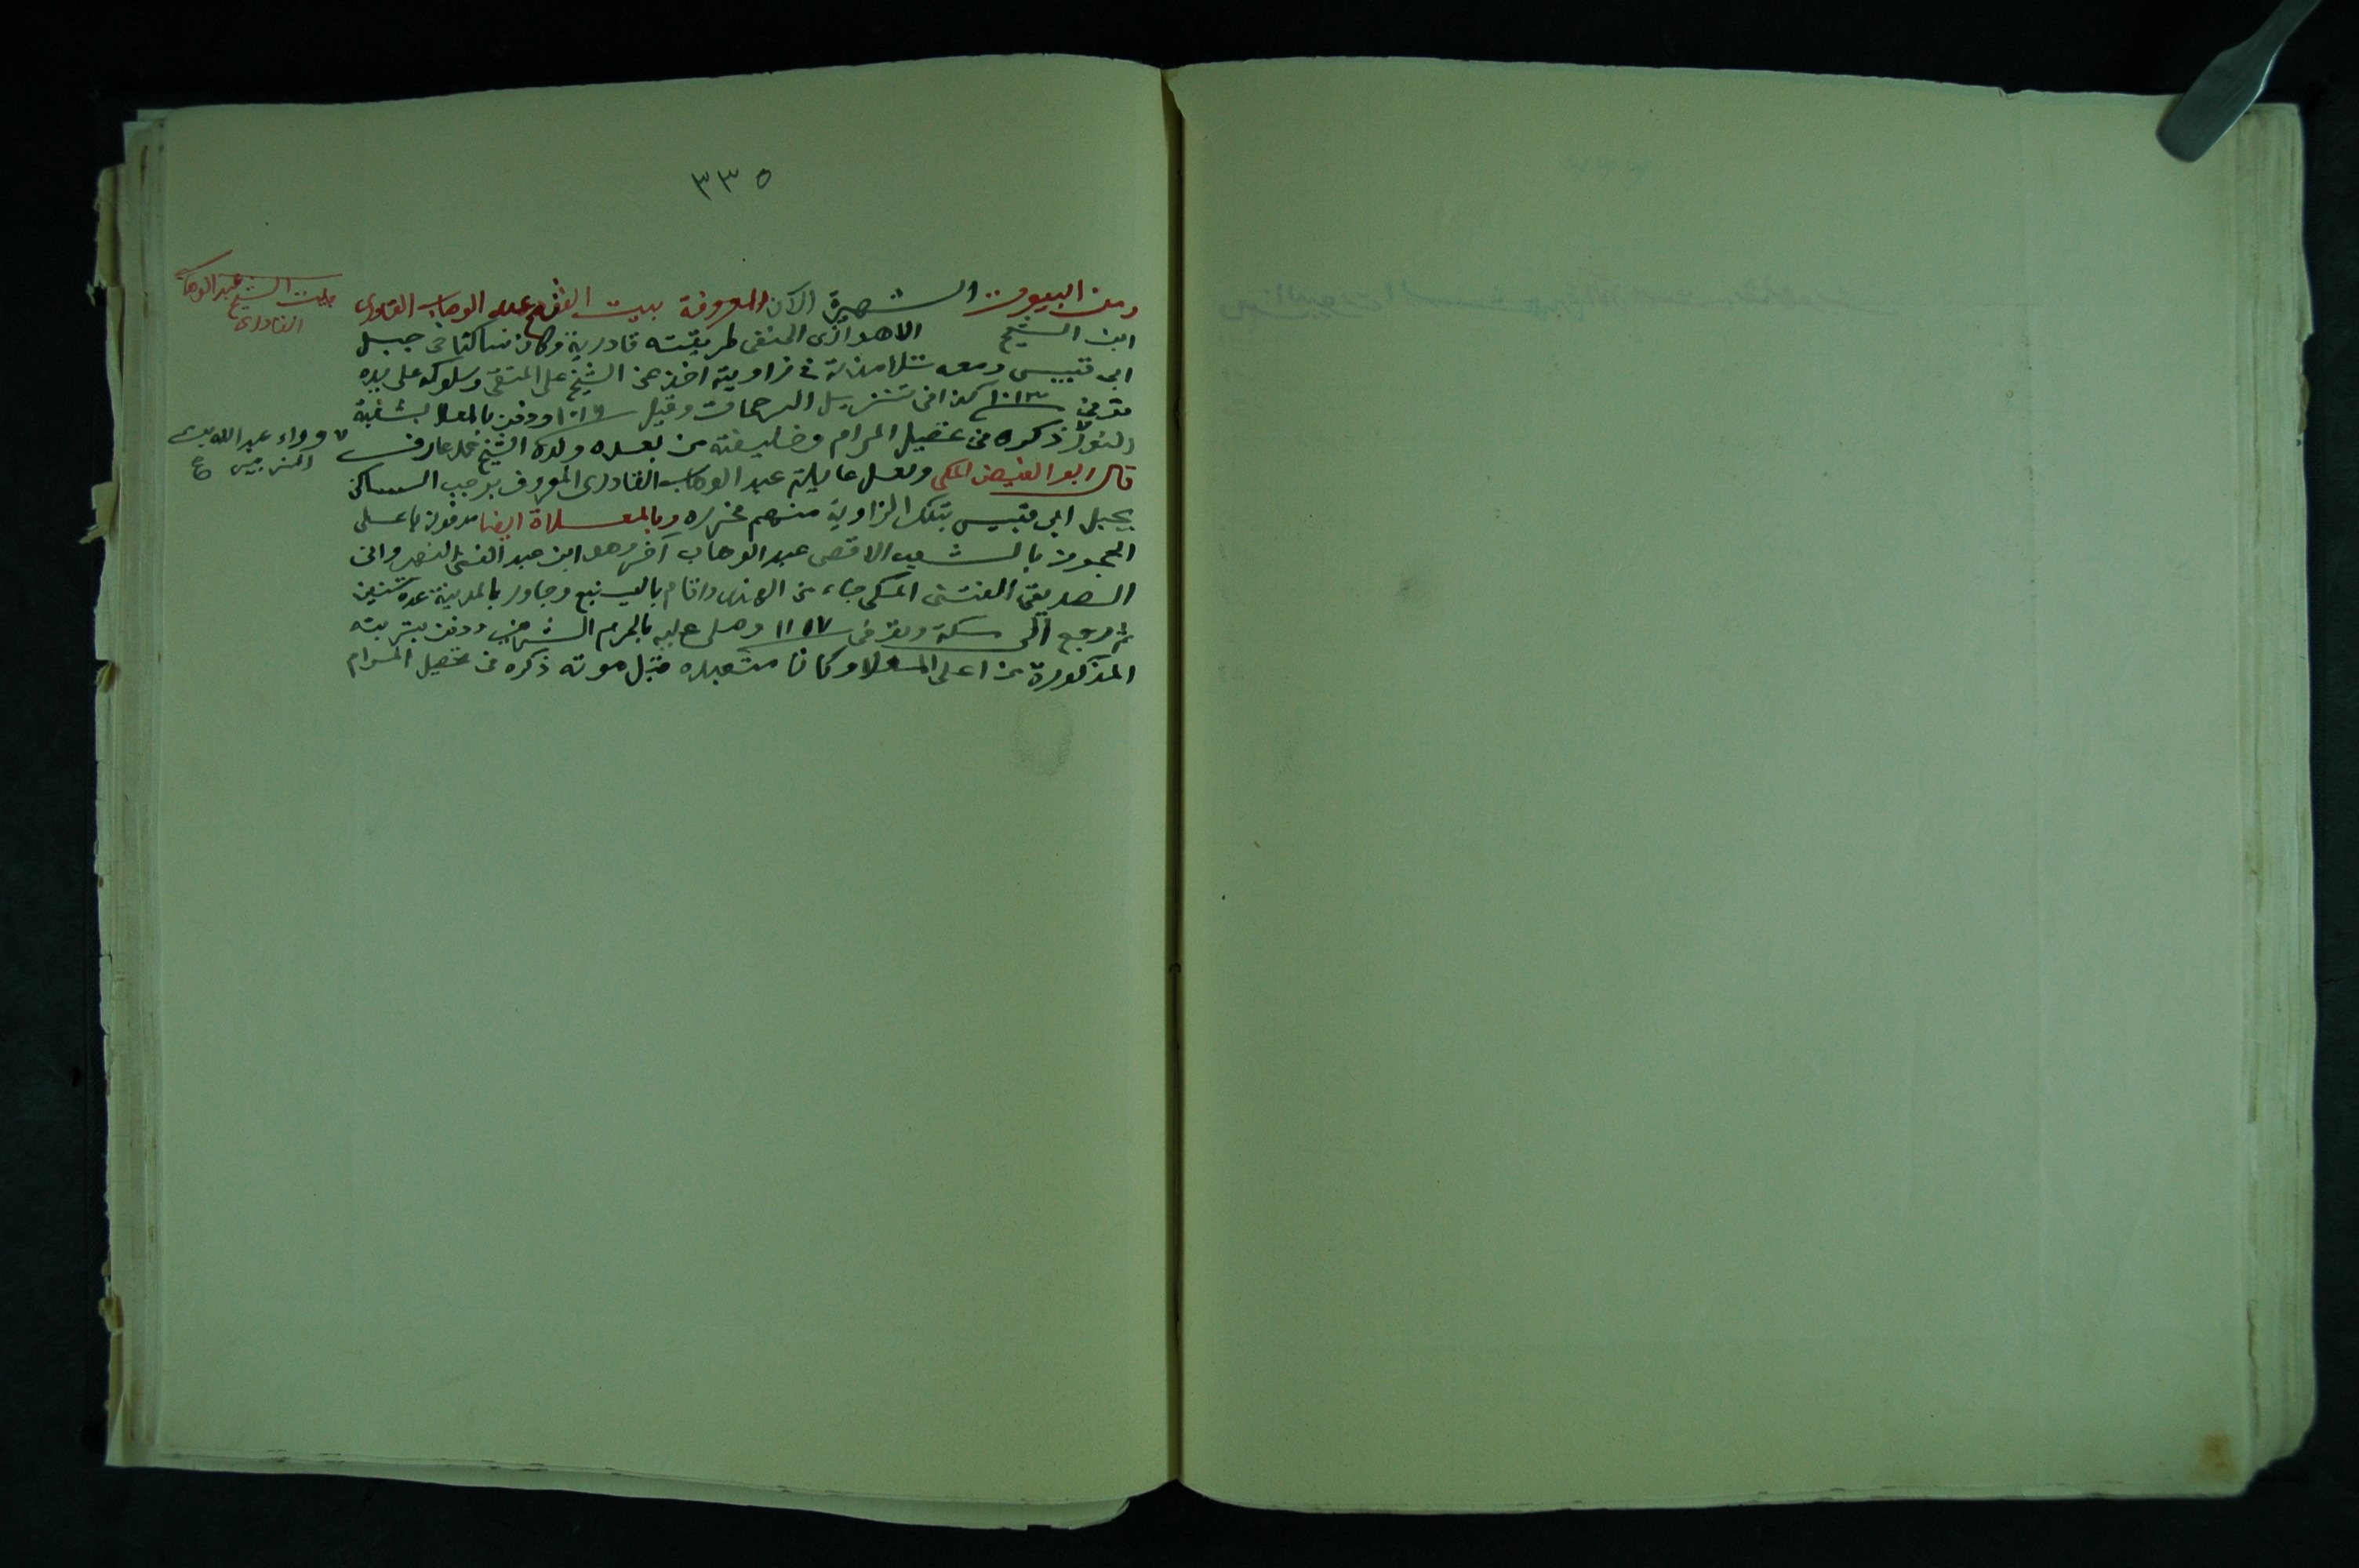 ٣٣٥
بيت الشيخ عبد الوهاب
القادرى
ومن البيوت الشهيرة الآن المعروفة ببيت الشيخ عبد الوهاب القادرى
ابن الشيخ الحنفى طريقته قادرية وكان ساكنا فى جبل
ابى قبيس ومعه تلامذته فى زاويته اخذ عن الشيخ على المتقى وسلوكه على يده
توفى كذا فى تنزيل الرحمات وقيل ودفن بالمعلا بشعبة
النور ذكره فى تحصيل المرام وخليفته من بعده ولده الشيخ محمد عارف
وراء عبد الله بن
الزبير
قال ابو الفيض المكى ولعل عايلة عبد الوهاب القادرى المعروف بوجب الساكن
بجبل ابى قبيس بتلك الزاوية منهم فحرره وبالمعلاة ايضا مدفون باعلى
الحجون بالشعب الاقصى عبد الوهاب آخر وهو ابن عبد الغنى
الصديقى المكى جاء من الهند واقام بالينبع وجاور بالمدينة عدة سنين
ثم رجع الى مكة وتوفى ١١٥٧ وصلى عليه بالحرم الشريف ودفن بتربته
المذكورة من اعلى المعلا وكانا متعبده قبل موته ذكره فى تحصيل المرام